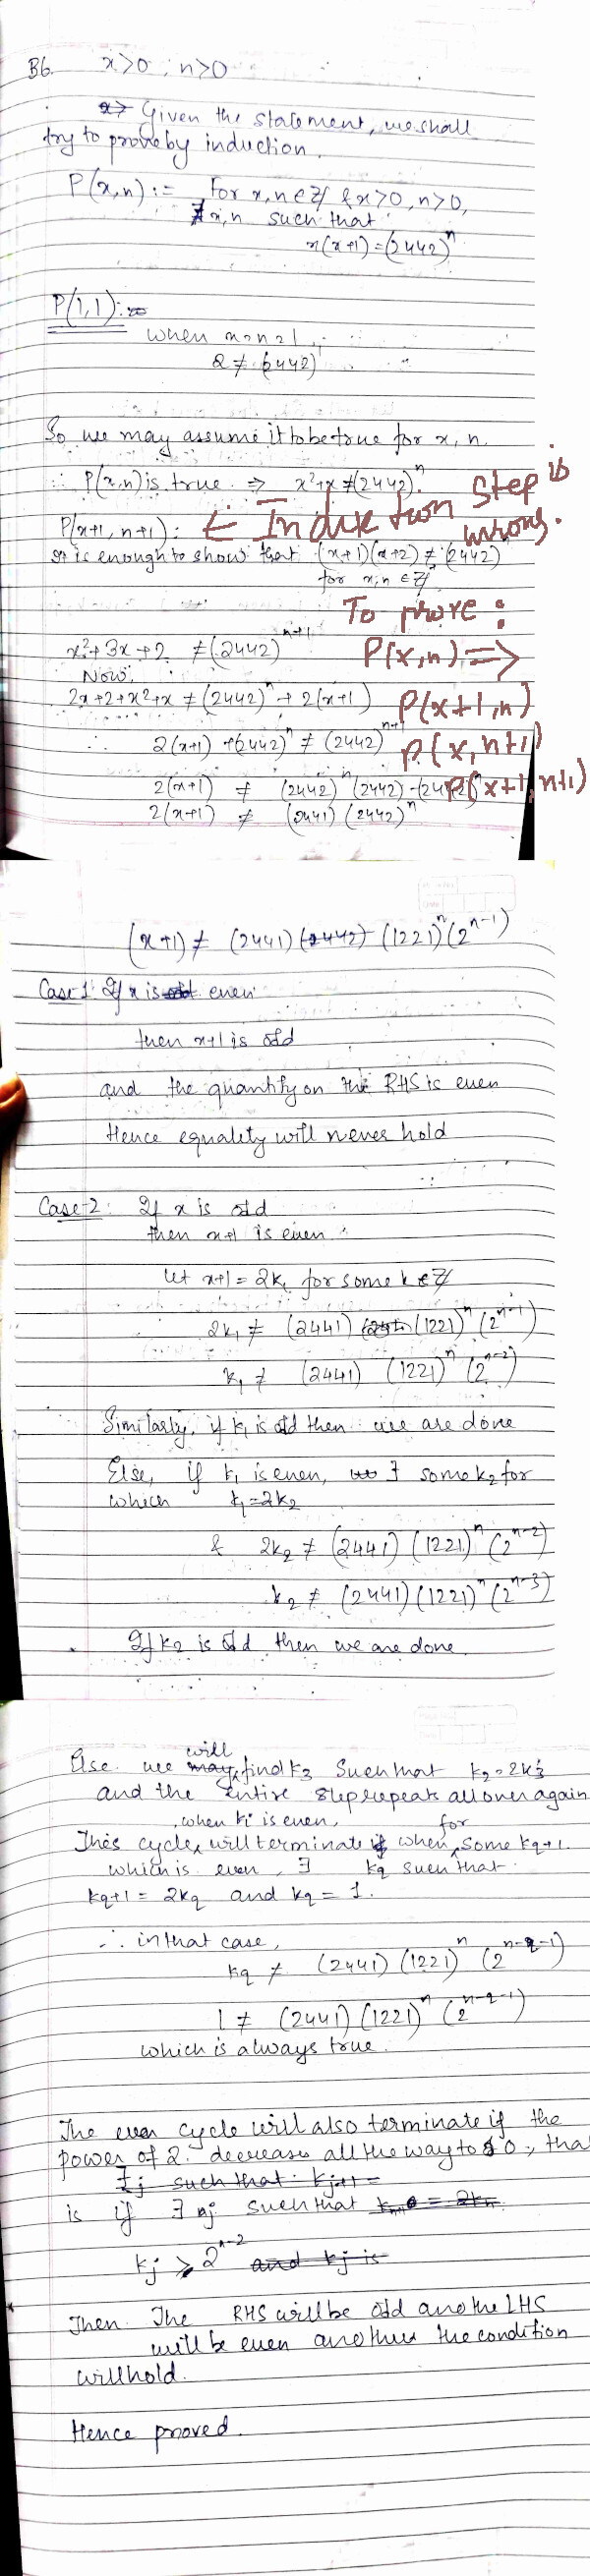 B6. x>0, n>0
Given the statement, we shall
try to prove by induction.
P(x,n) := For x,n ∈ Z & x>0, n>0,
∄ x,n such that
x(x+1) = (2442)^n
P(1,1) :=
when x=n=1,
2 ≠ (2442)
So we may assume it to be true for x, n.
∴ P(x,n) is true ⇒ x²+x ≠ (2442)^n.
P(x+1, n+1): ← Induction Step is wrong.
It is enough to show that (x+1)(x+2) ≠ (2442)
for x,n ∈ Z
To prove:
x²+3x+2 ≠ (2442)^{n+1}
P(x,n) ⇒
Now,
2x+2+x²+x ≠ (2442)^n + 2(x+1)
P(x+1,n)
∴ 2(x+1) + (2442)^n ≠ (2442)^{n+1}
P(x,n+1)
2(x+1) ≠ (2442)^n (2442) - (2442)^n
P(x+1,n+1)
2(x+1) ≠ (2441) (2442)^n
(x+1) ≠ (2441) (1221)^n (2^{n-1})
Case-1 If x is even
then x+1 is odd
and the quantity on the RHS is even
Hence equality will never hold
Case-2: If x is odd
then x+1 is even
let x+1 = 2k₁ for some k ∈ Z
2k₁ ≠ (2441) (1221)^n (2^{n-1})
k₁ ≠ (2441) (1221)^n (2^{n-2})
Similarly, if k₁ is odd then we are done
Else, if k₁ is even, ∃ some k₂ for
which k₁=2k₂
& 2k₂ ≠ (2441) (1221)^n (2^{n-2})
k₂ ≠ (2441) (1221)^n (2^{n-3})
If k₂ is odd then we are done.
Else we will find k₃ such that k₂=2k₃
and the entire step repeats all over again
when ki is even,
This cycle will terminate when for some kq+1
which is even, ∃ kq such that
kq+1 = 2kq and kq = 1.
∴ in that case,
kq ≠ (2441) (1221)^n (2^{n-q-1})
1 ≠ (2441) (1221)^n (2^{n-q-1})
which is always true.
The cycle will also terminate if the
power of 2 decreases all the way to 0, that
∃j such that kj+1 =
is if ∃ nj such that
kj ≥ 2^{n-2} and kj is
Then The RHS will be odd and the LHS
will be even and thus the condition
will hold.
Hence proved.